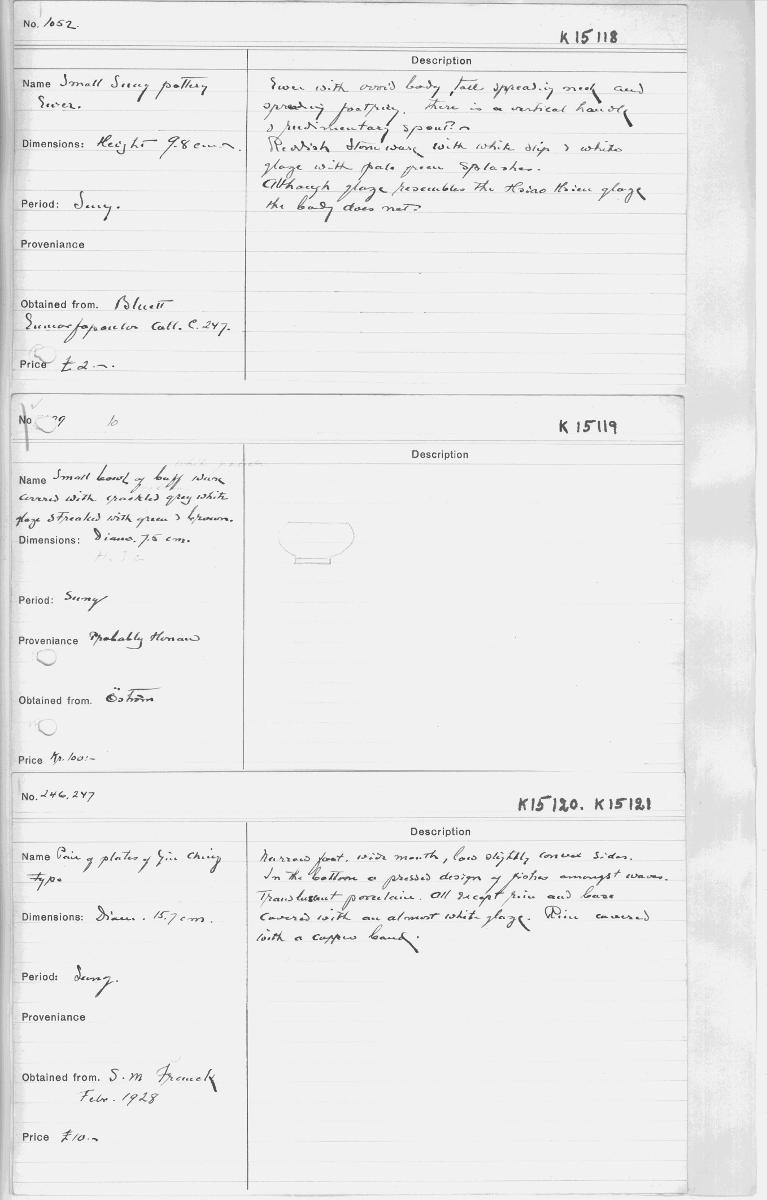 No. 1052.
K 15118
Description
Name Small Sung pottery
Ewer.
Dimensions: Height 9.8 cm.
Period: Sung.
Proveniance
Obtained from. Bluett
Eumorfopoulos Coll. C. 247.
Price £2.-.
Ewer with ovoid body, tall spreading neck and
spreading footring. There is a vertical handle
& rudimentary spout.
Reddish stoneware with white slip & white
glaze with pale green splashes.
Although glaze resembles the Hsiao Hsien glaze
the body does not.
No 10
K 15119
Description
Name Small bowl of buff ware
covered with crackled grey white
glaze streaked with green & brown.
Dimensions: Diam. 7.5 cm.
Period: Sung
Proveniance Probably Honan
Obtained from. Öström
Price Kr. 100:-
No. 246, 247
K15120. K15121
Description
Name Pair of plates of Yin Ching
type
Dimensions: Diam. 15.7 cm.
Period: Sung.
Proveniance
Obtained from. S. M Franck
Febr. 1928
Price £10.-
Narrow foot, wide mouth, low slightly convex sides.
In the bottom a pressed design of fishes amongst waves.
Translucent porcelain. All except rim and base
covered with an almost white glaze. Rim covered
with a copper band.